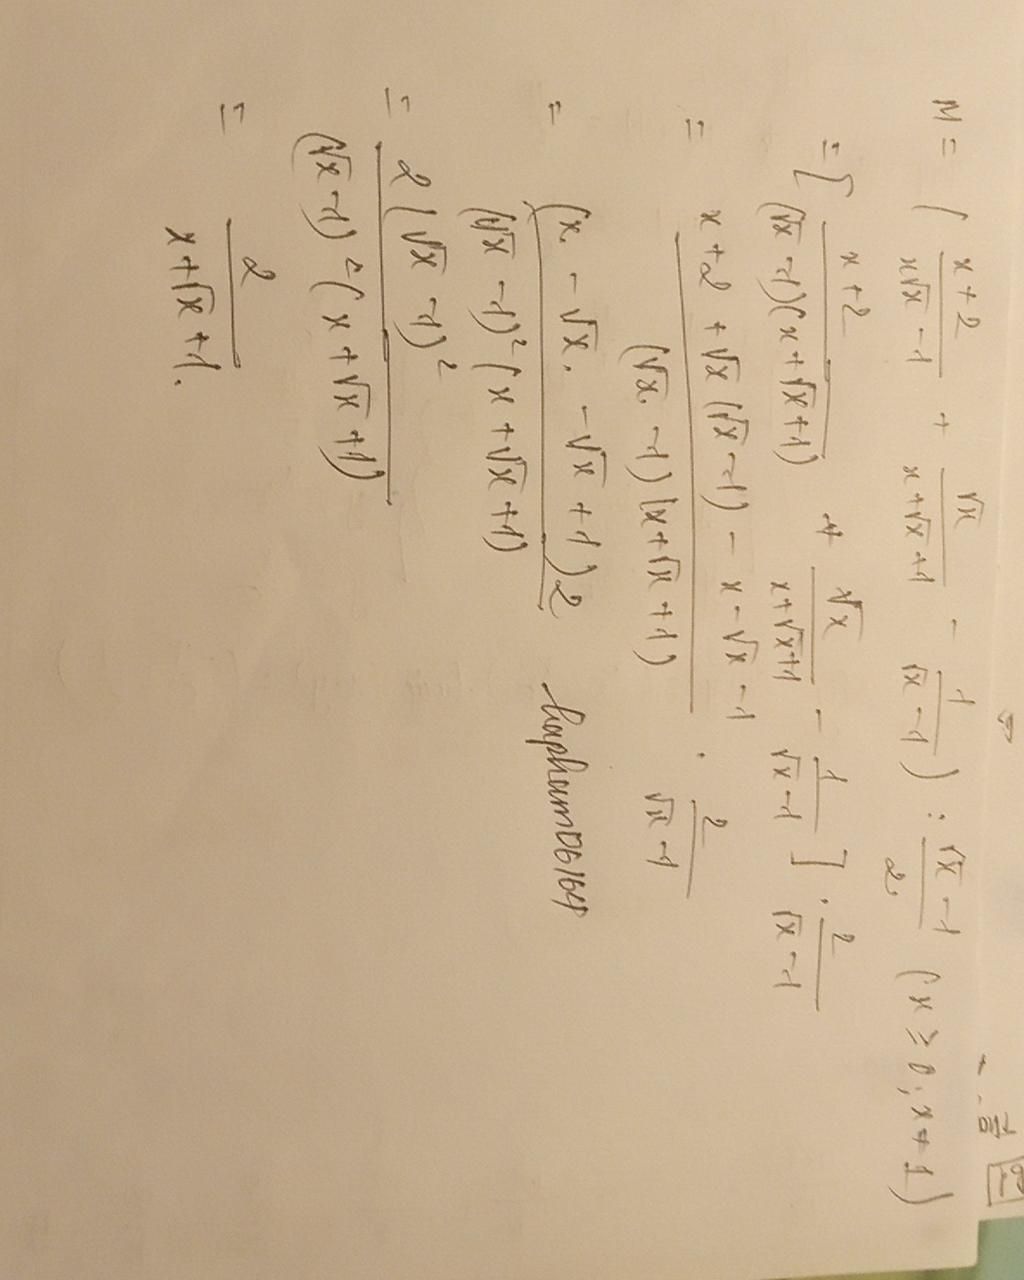 M = ( x+2 / x√x - 1 + √x / x+√x+1 - 1 / √x - 1 ) : √x - 1 / 2 ( x ≥ 0 ; x ≠ 1 )
= [ x+2 / (√x - 1)(x+√x+1) + √x / x+√x+1 - 1 / √x - 1 ] . 2 / √x - 1
= x+2 + √x (√x - 1) - x - √x - 1 / (√x - 1)(x+√x+1) . 2 / √x - 1
= (x - √x - √x + 1) 2 / (√x - 1)² (x+√x+1)
hapham06164
= 2 (√x - 1)² / (√x - 1)² (x+√x+1)
= 2 / x+√x+1.